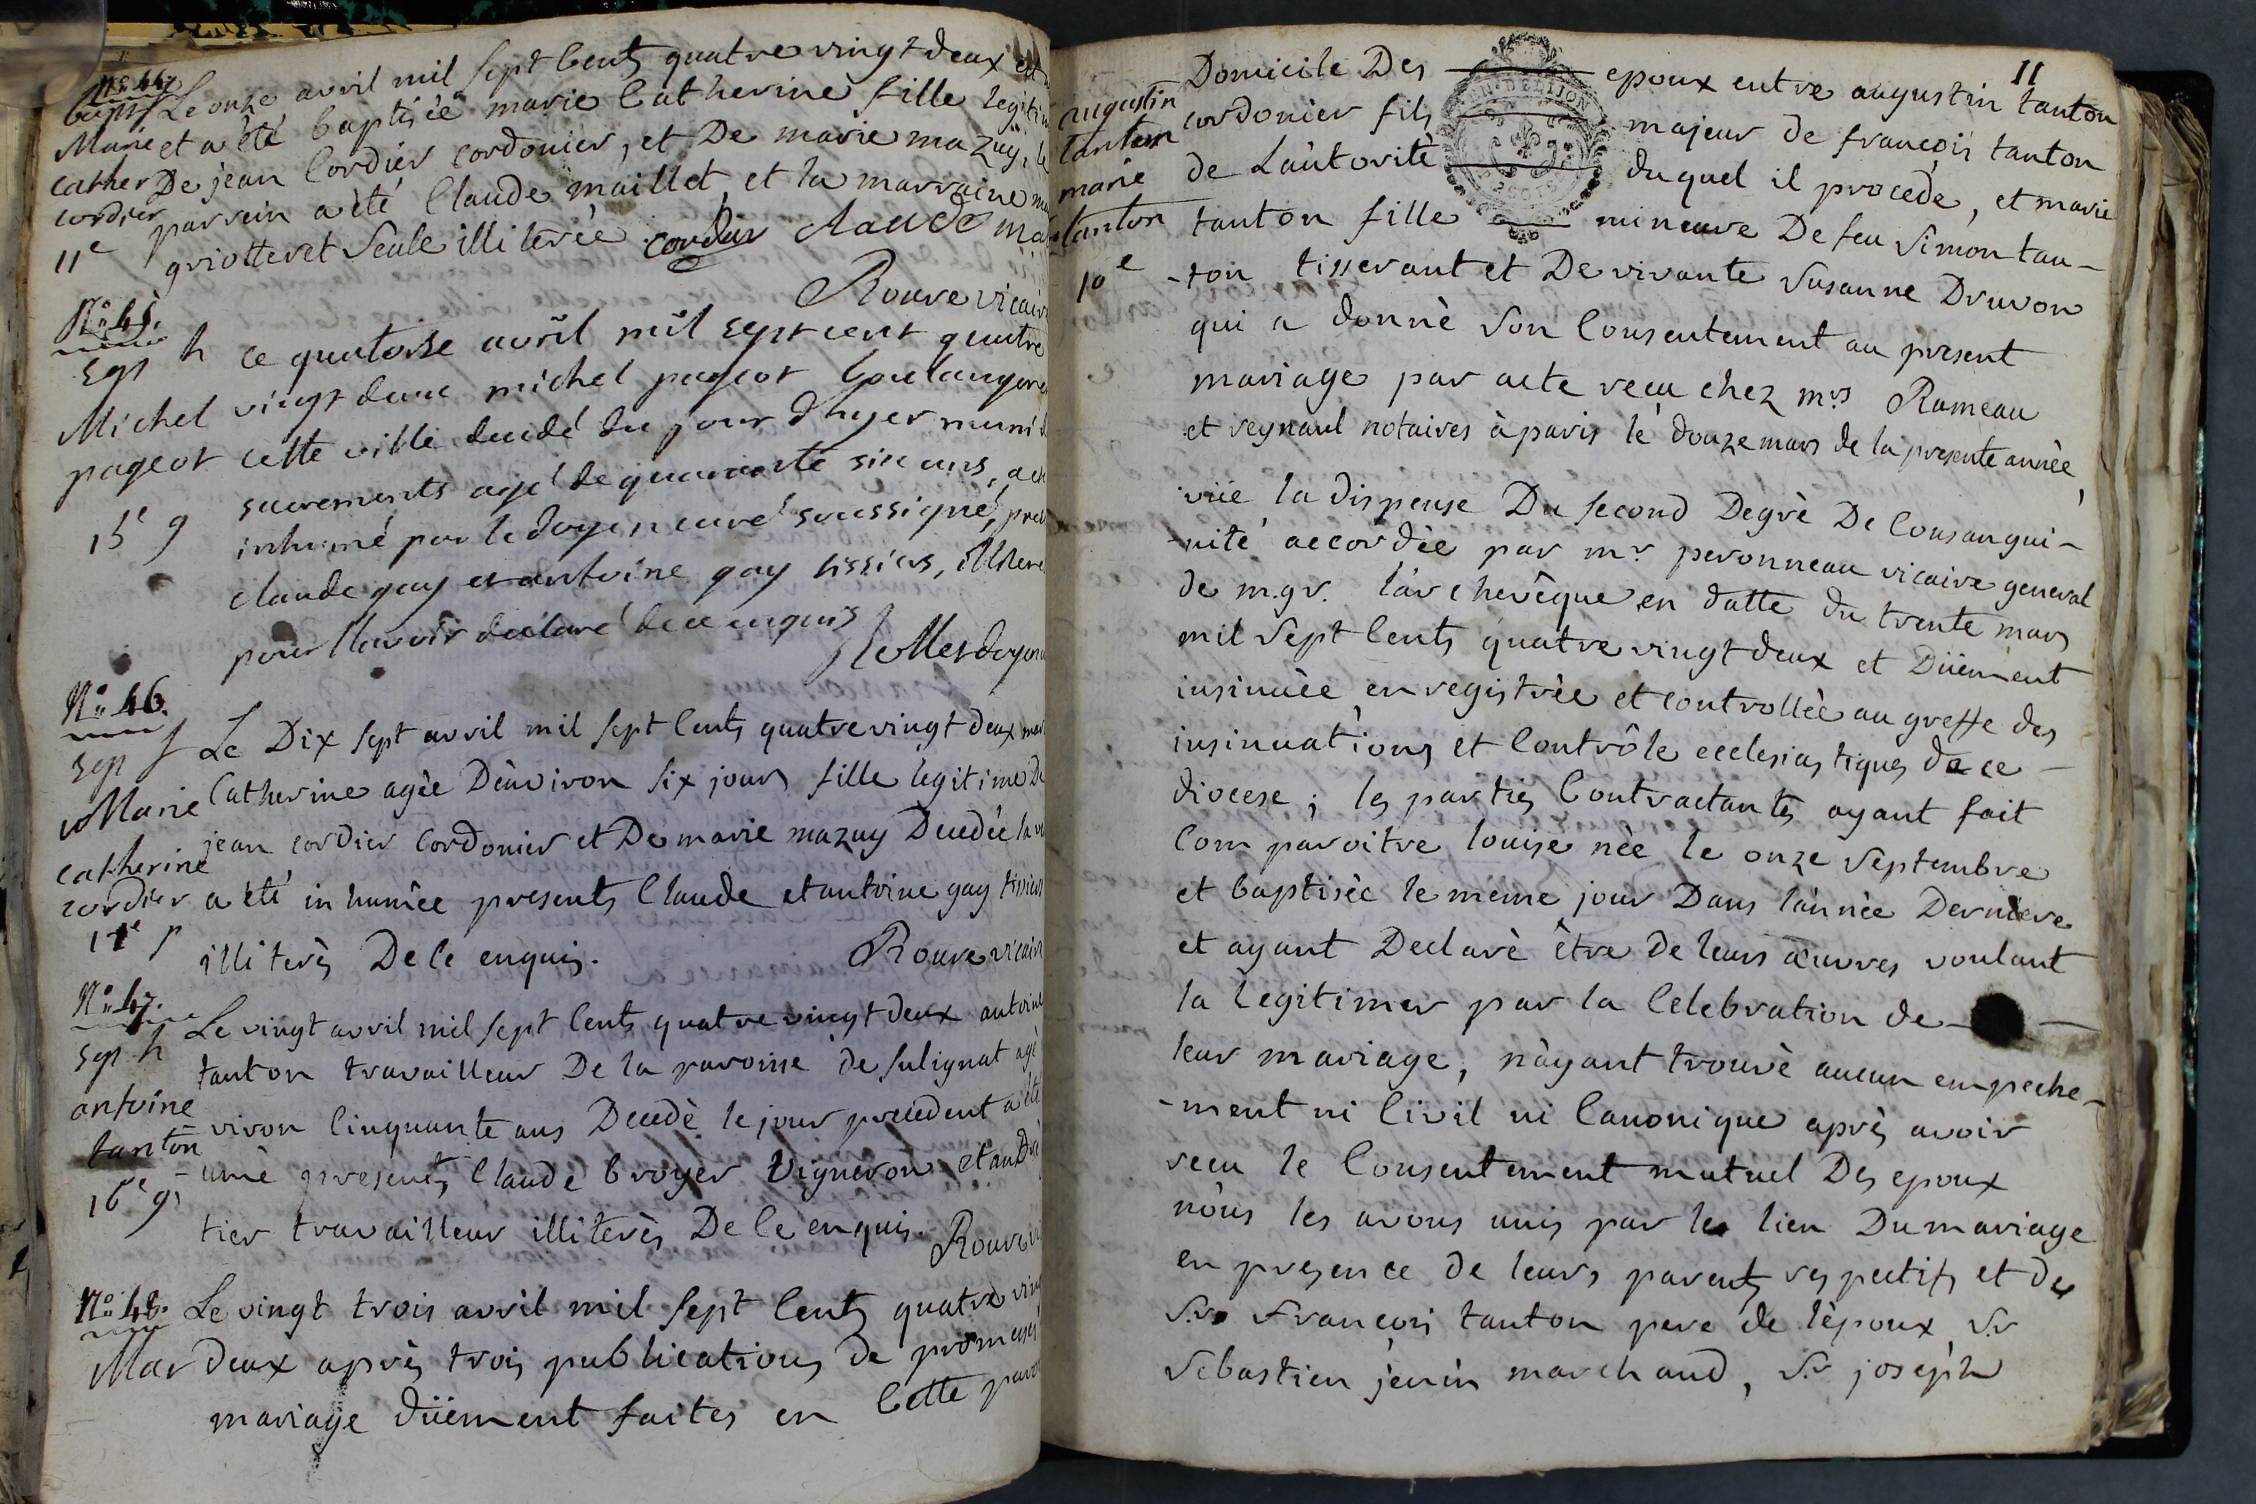 N° 44
bapt f Le onze avril mil sept Cents quatre vingt deux est
Marie et a été baptisée marie Catherine fille legiti
Cather De jean Cordier cordonier, et De marie mazuy, le
cordier parrein a été Claude maillet et la marraine
11e griotteret Seule illiterée cordier claude ma
Rouve vicair
N° 45.
Sep h ce quatorse avril mil sept cent quatre
Michel vingt deux michel pageot boulanger
pageot cette ville decedé du jour d'hyer muni d
sacrements agé de quarante six ans, a été
15e g inhumé par le doyen curé soussigné, pres
claude gay et antoine gay tissiers, illitere
pour l'avoir declaré de ce enquis
doyen
N° 46.
Sep f Le Dix sept avril mil sept Cents quatre vingt deux mar
Marie Catherine agée D'environ six jours fille legitime De
catherine jean cordier Cordonier et De marie mazuy Decedée la v
cordier a été inhumée presents Claude et antoine gay tissiers
17e f illiterés De ce enquis. Rouve vicair
N° 47.
Sep h Le vingt avril mil sept Cents quatre vingt deux antoine
antoine tanton travailleur De la paroisse de sulignat agé
tanton viron Cinquante ans Decedé le jour precedent a été
-umé presents Claude broyer Vigneron et
16e g tier travailleur illiterés De Ce enquis. Rouve
N° 48. Le vingt trois avril mil sept Cents quatre vin
Mar deux après trois publications de promesses
mariage düement faites en Cette paro
11
Domicile Des epoux entre augustin tanton
augustin tanton cordonier fils majeur de françois tanton
marie de L'autorité duquel il procede, et marie
tanton tanton fille mineure De feu Simon tan-
10e -ton tisserant et De vivante Susanne Druvon
qui a donné son Consentement au present
mariage par acte recu chez mrs Rameau
et reynaul notaires à paris le douze mars de la presente année,
vüe la dispense Du second Degré De Consangui-
-nité accordée par mr peronneau vicaire general
de m.gr. l'archevêque en datte du trente mars
mil Sept Cents quatre vingt deux et Düement
insinuée enregistrée et controllée au greffe des
insinuations et Contrôle ecclesiastiques de ce -
diocese; les parties Contractantes ayant fait
Comparoitre louise née le onze Septembre
et baptisée le même jour Dans l'année Derniere
et ayant Declaré être de leurs œuvres voulant
la legitimer par la Celebration de -
leur mariage, n'ayant trouvé aucun empeche-
-ment ni Civil ni Canonique après avoir
recu le Consentement mutuel Des epoux
nous les avons unis par le lien Du mariage
en presence de leurs parents respectifs et des
Srs François tanton pere de l'époux Sr
Sebastien jenin marchand, Sr joseph